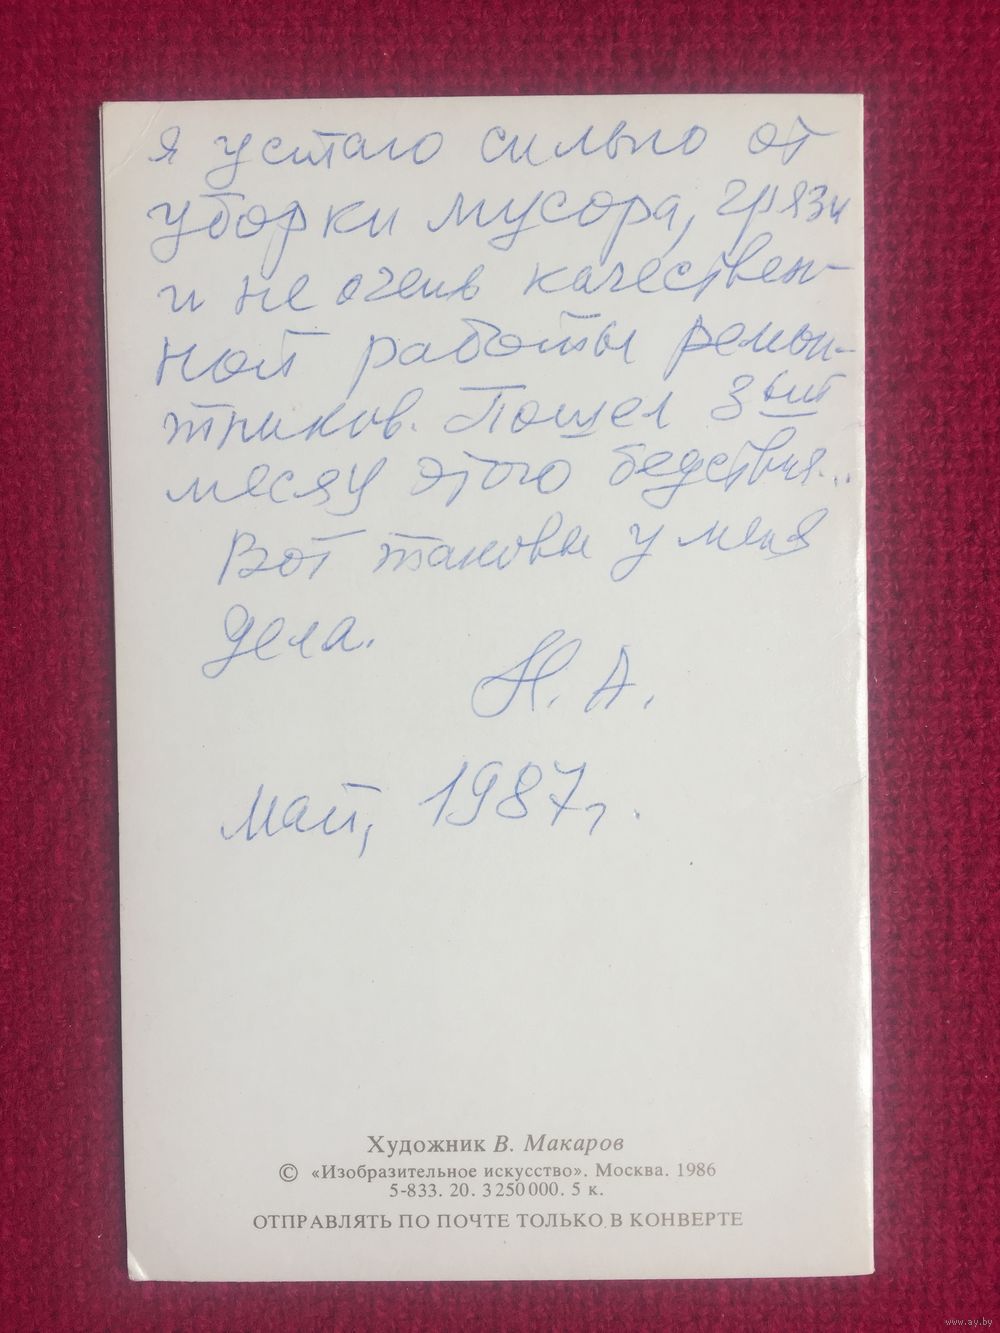 я устаю сильно от
уборки мусора, грязи
и не очень качествен-
ной работы ремон-
тников. Пошел 3ый
месяц этого бедствия...
Вот таковы у меня
дела.
Н. А.
май, 1987г.
Художник В. Макаров
© «Изобразительное искусство». Москва. 1986
5-833. 20. 3250000. 5 к.
ОТПРАВЛЯТЬ ПО ПОЧТЕ ТОЛЬКО В КОНВЕРТЕ
www.ay.by